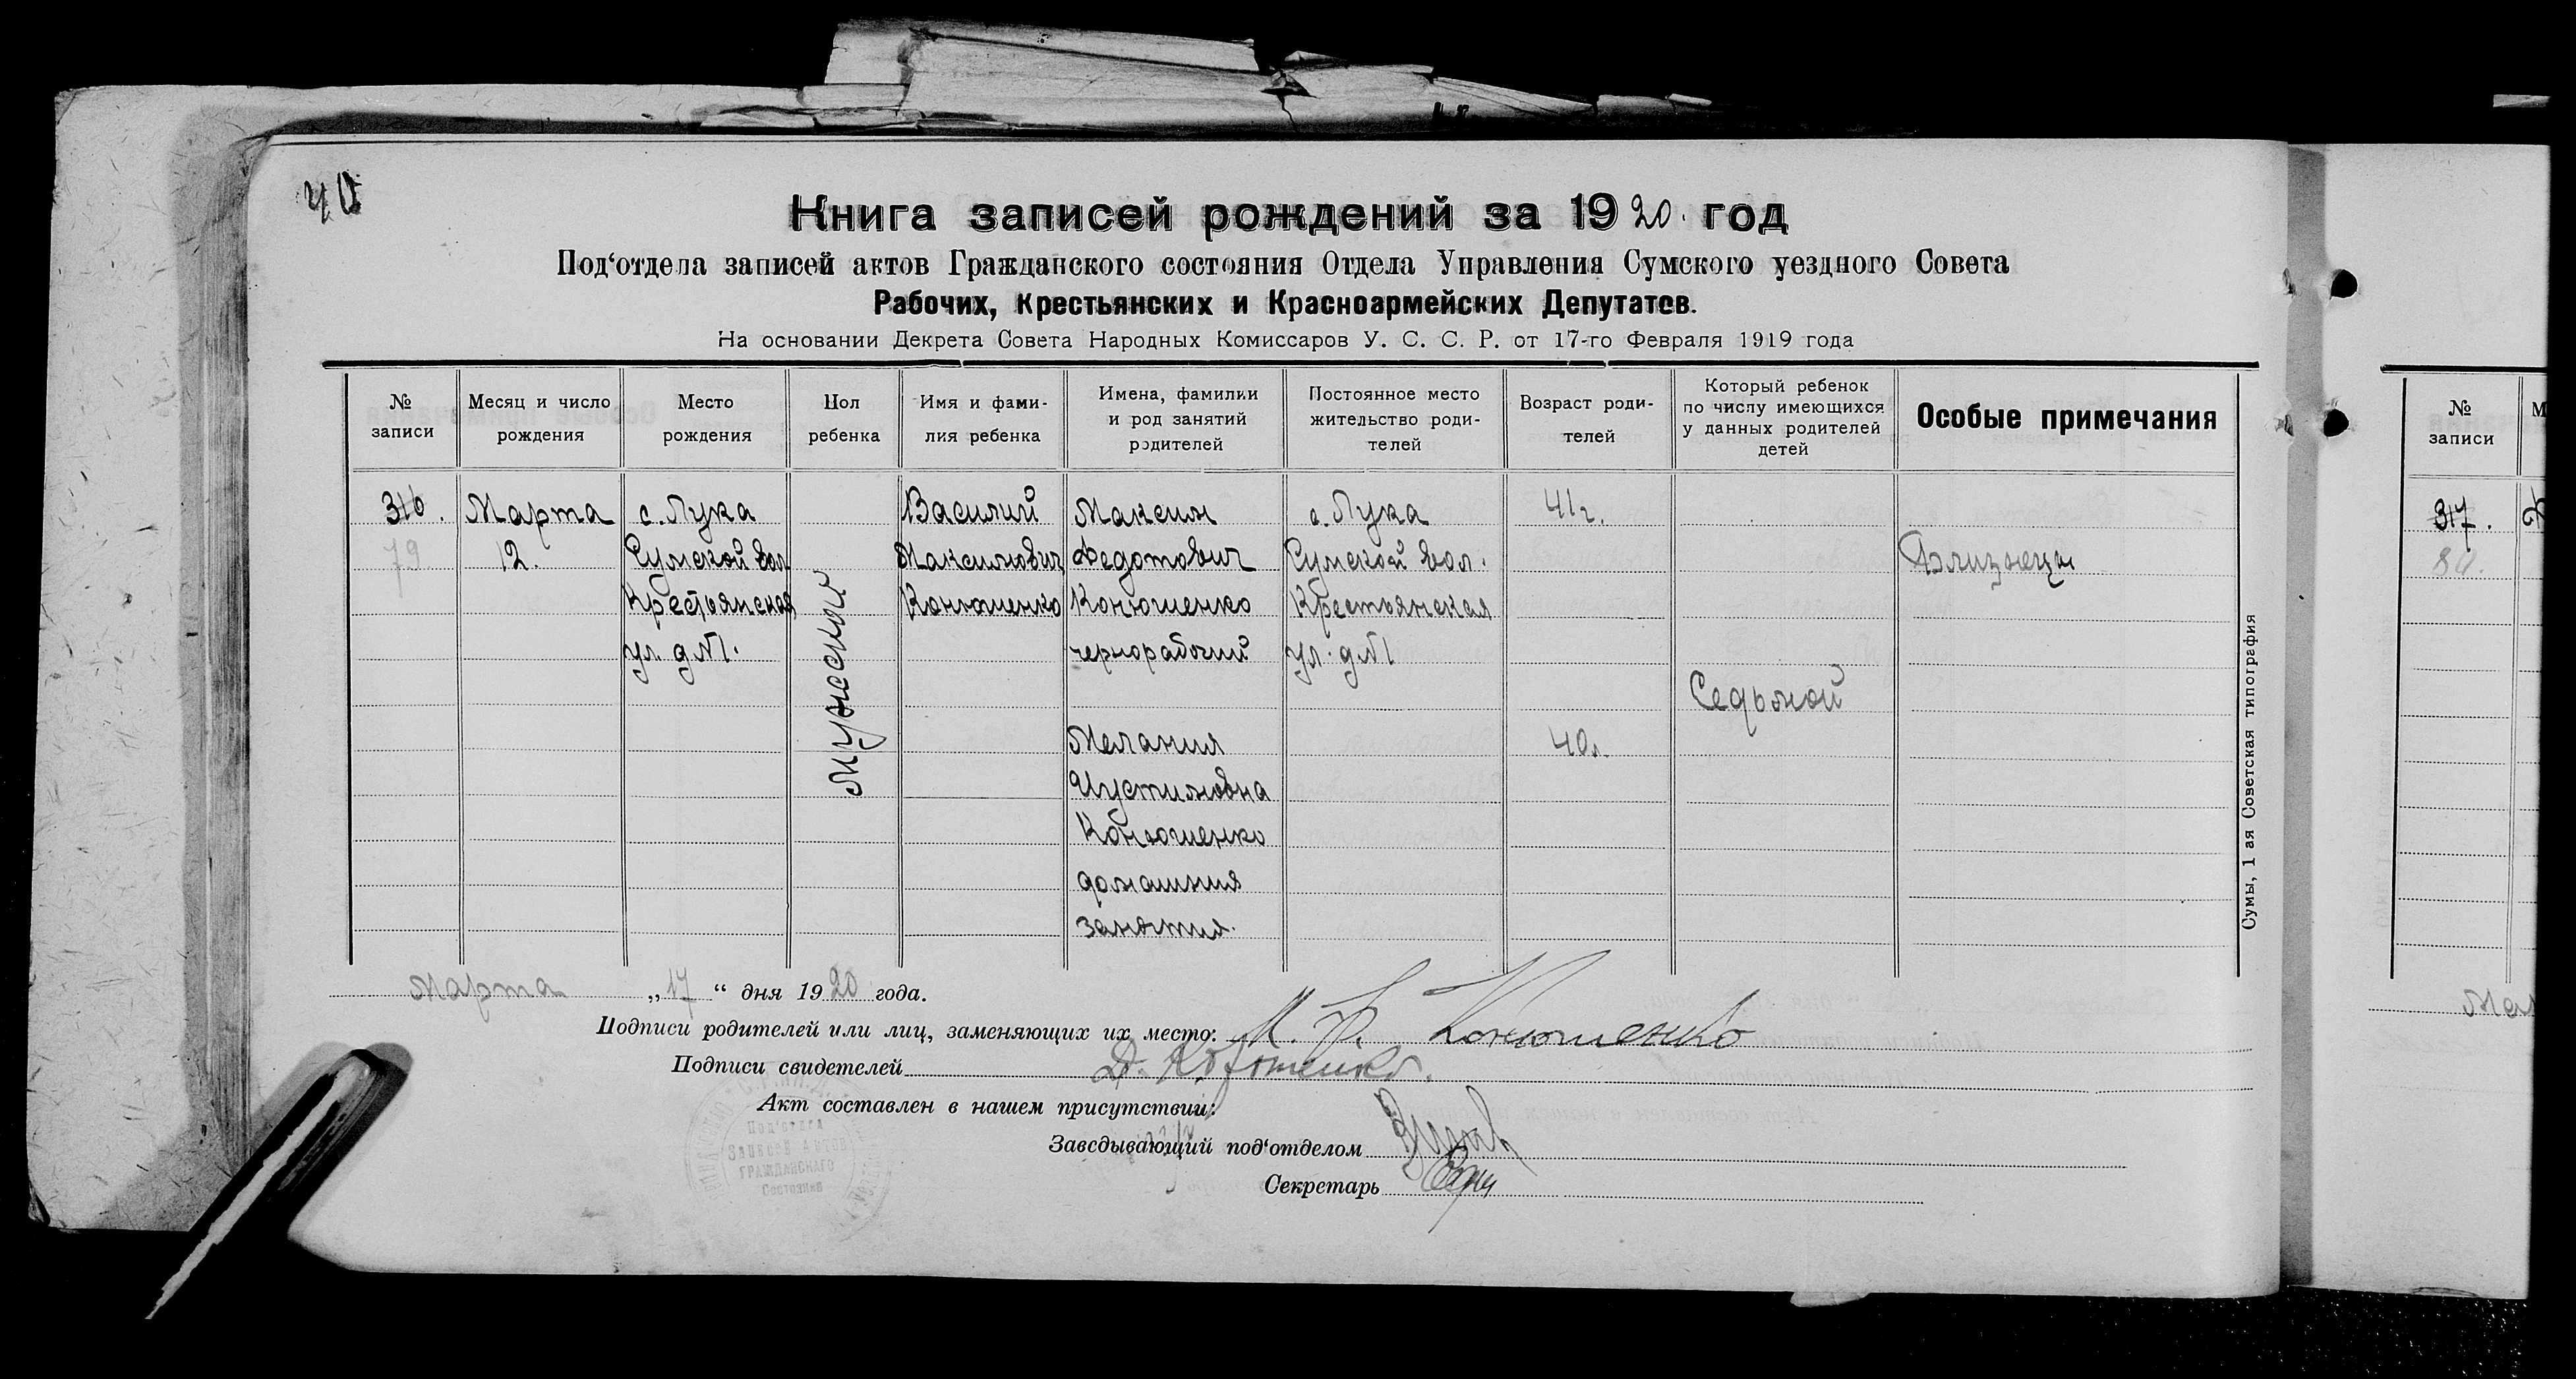 40
Книга записей рождений за 1920. год
Под‘отдела записей актов Гражданского состояния Отдела Управления Сумского уездного Совета
Рабочих, Крестьянских и Красноармейских Депутатов.
На основании Декрета Совета Народных Комиссаров У. С. С. Р. от 17-го Февраля 1919 года
№ записи
Месяц и число рождения
Место рождения
Пол ребенка
Имя и фами-
лия ребенка
Имена, фамилии
и род занятий
родителей
Постоянное место
жительство роди-
телей
Возраст роди-
телей
Который ребенок
по числу имеющихся
у данных родителей
детей
Особые примечания
316.
79
Марта
12.
с. Лука
Сумской вол
Крестьянская
ул. д№1.
Мужеской
Василий
Максимович
Конюшенко
Максим
Федотович
Конюшенко
чернорабочий
Мелания
Иустиновна
Конюшенко
домашния
занятия.
с. Лука
Сумской вол.
Крестьянская
ул. д№1
41г.
40л.
Седьмой
Близнецы
Марта „17“ дня 1920 года.
Подписи родителей или лиц, заменяющих их место: М. Ф. Конюшенко
Подписи свидетелей Д.
Акт составлен в нашем присутствии:
Заведывающий под‘отделом
Секретарь
Под‘отдел
Записей Актов
Гражданскаго
Состояния
Сумы, 1 ая Советская типография
№
записи
317.
80.